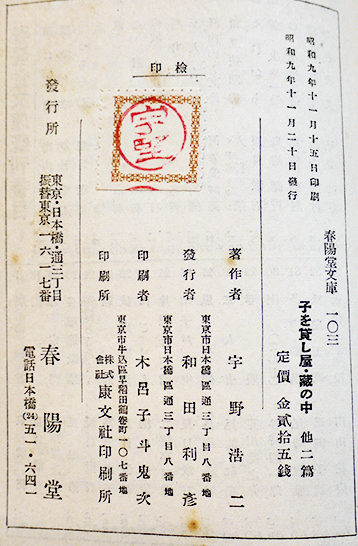 昭和九年十一月十五日印刷
昭和九年十一月二十日發行
春陽堂文庫 一〇三
子を貸し屋・藏の中 他二篇
定價 金貳拾五錢
著作者 宇野浩二
東京市日本橋區通三丁目八番地
發行者 和田利彥
東京市日本橋區通三丁目八番地
印刷者 木呂子斗鬼次
東京市牛込區早稻田鶴卷町一〇七番地
印刷所 株式會社 康文社印刷所
檢印
發行所
東京・日本橋・通三丁目
振替東京一六一一七番
春陽堂
電話日本橋(24)五一・六四一